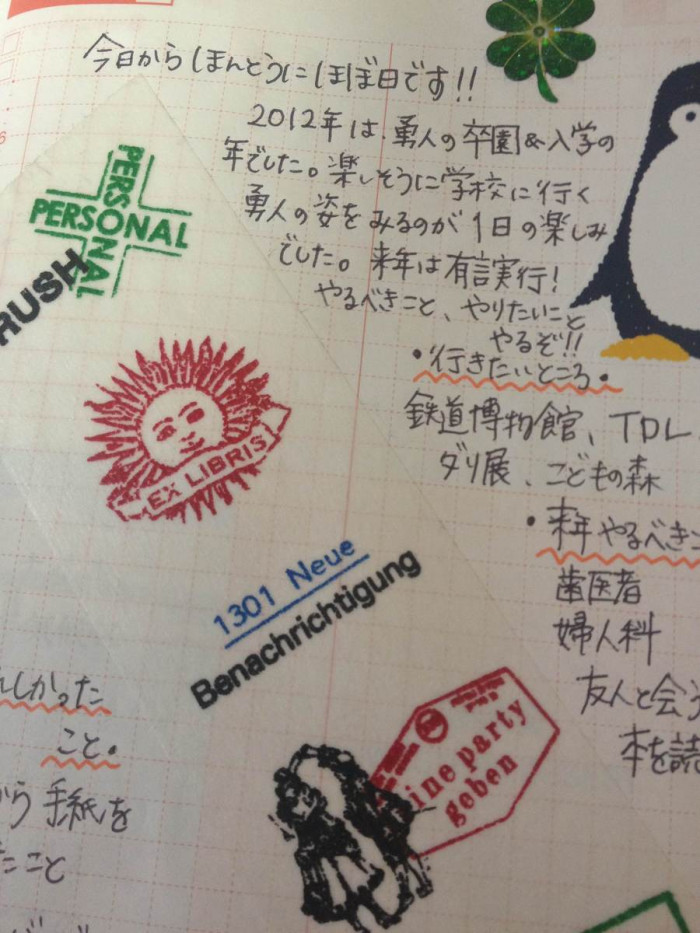 今日からほんとうにほぼ日です!!
2012年は、勇人の卒園&入学の
年でした。楽しそうに学校に行く
勇人の姿をみるのが1日の楽しみ
でした。来年は有言実行!
やるべきこと、やりたいこと
やるぞ!!
・行きたいところ・
鉄道博物館、TDL
ダリ展、こどもの森
・来年やるべきこ
歯医者
婦人科
友人と会う
本を読
PERSONAL
PERSONAL
RUSH
EX LIBRIS
1301 Neue
Benachrichtigung
ine party
geben
れしかった
こと。
から手紙を
たこと